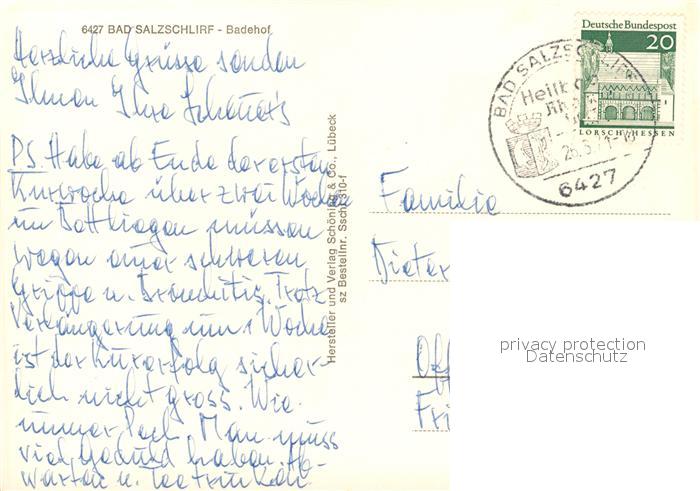 6427 BAD SALZSCHLIRF - Badehof
Herzliche Grüsse senden
Ihnen Ihre
PS Habe ab Ende der ersten
Kurwoche über zwei Wochen
im Bett liegen müssen
wegen einer schweren
Grippe u. Bronchitis. Trotz
Verlängerung um 1 Woche
ist der Kurerfolg sicher-
lich nicht gross. Wie
immer Pech. Man muss
viel Geduld haben. Ab-
warten u. Tee trinken.
Hersteller und Verlag Schöning & Co., Lübeck
sz Bestellnr. Ssch 310-f
Deutsche Bundespost
20
LORSCH/HESSEN
BAD SALZSCHLIRF
Heilb
6427
Familie
Dieter
Fri
privacy protection
Datenschutz